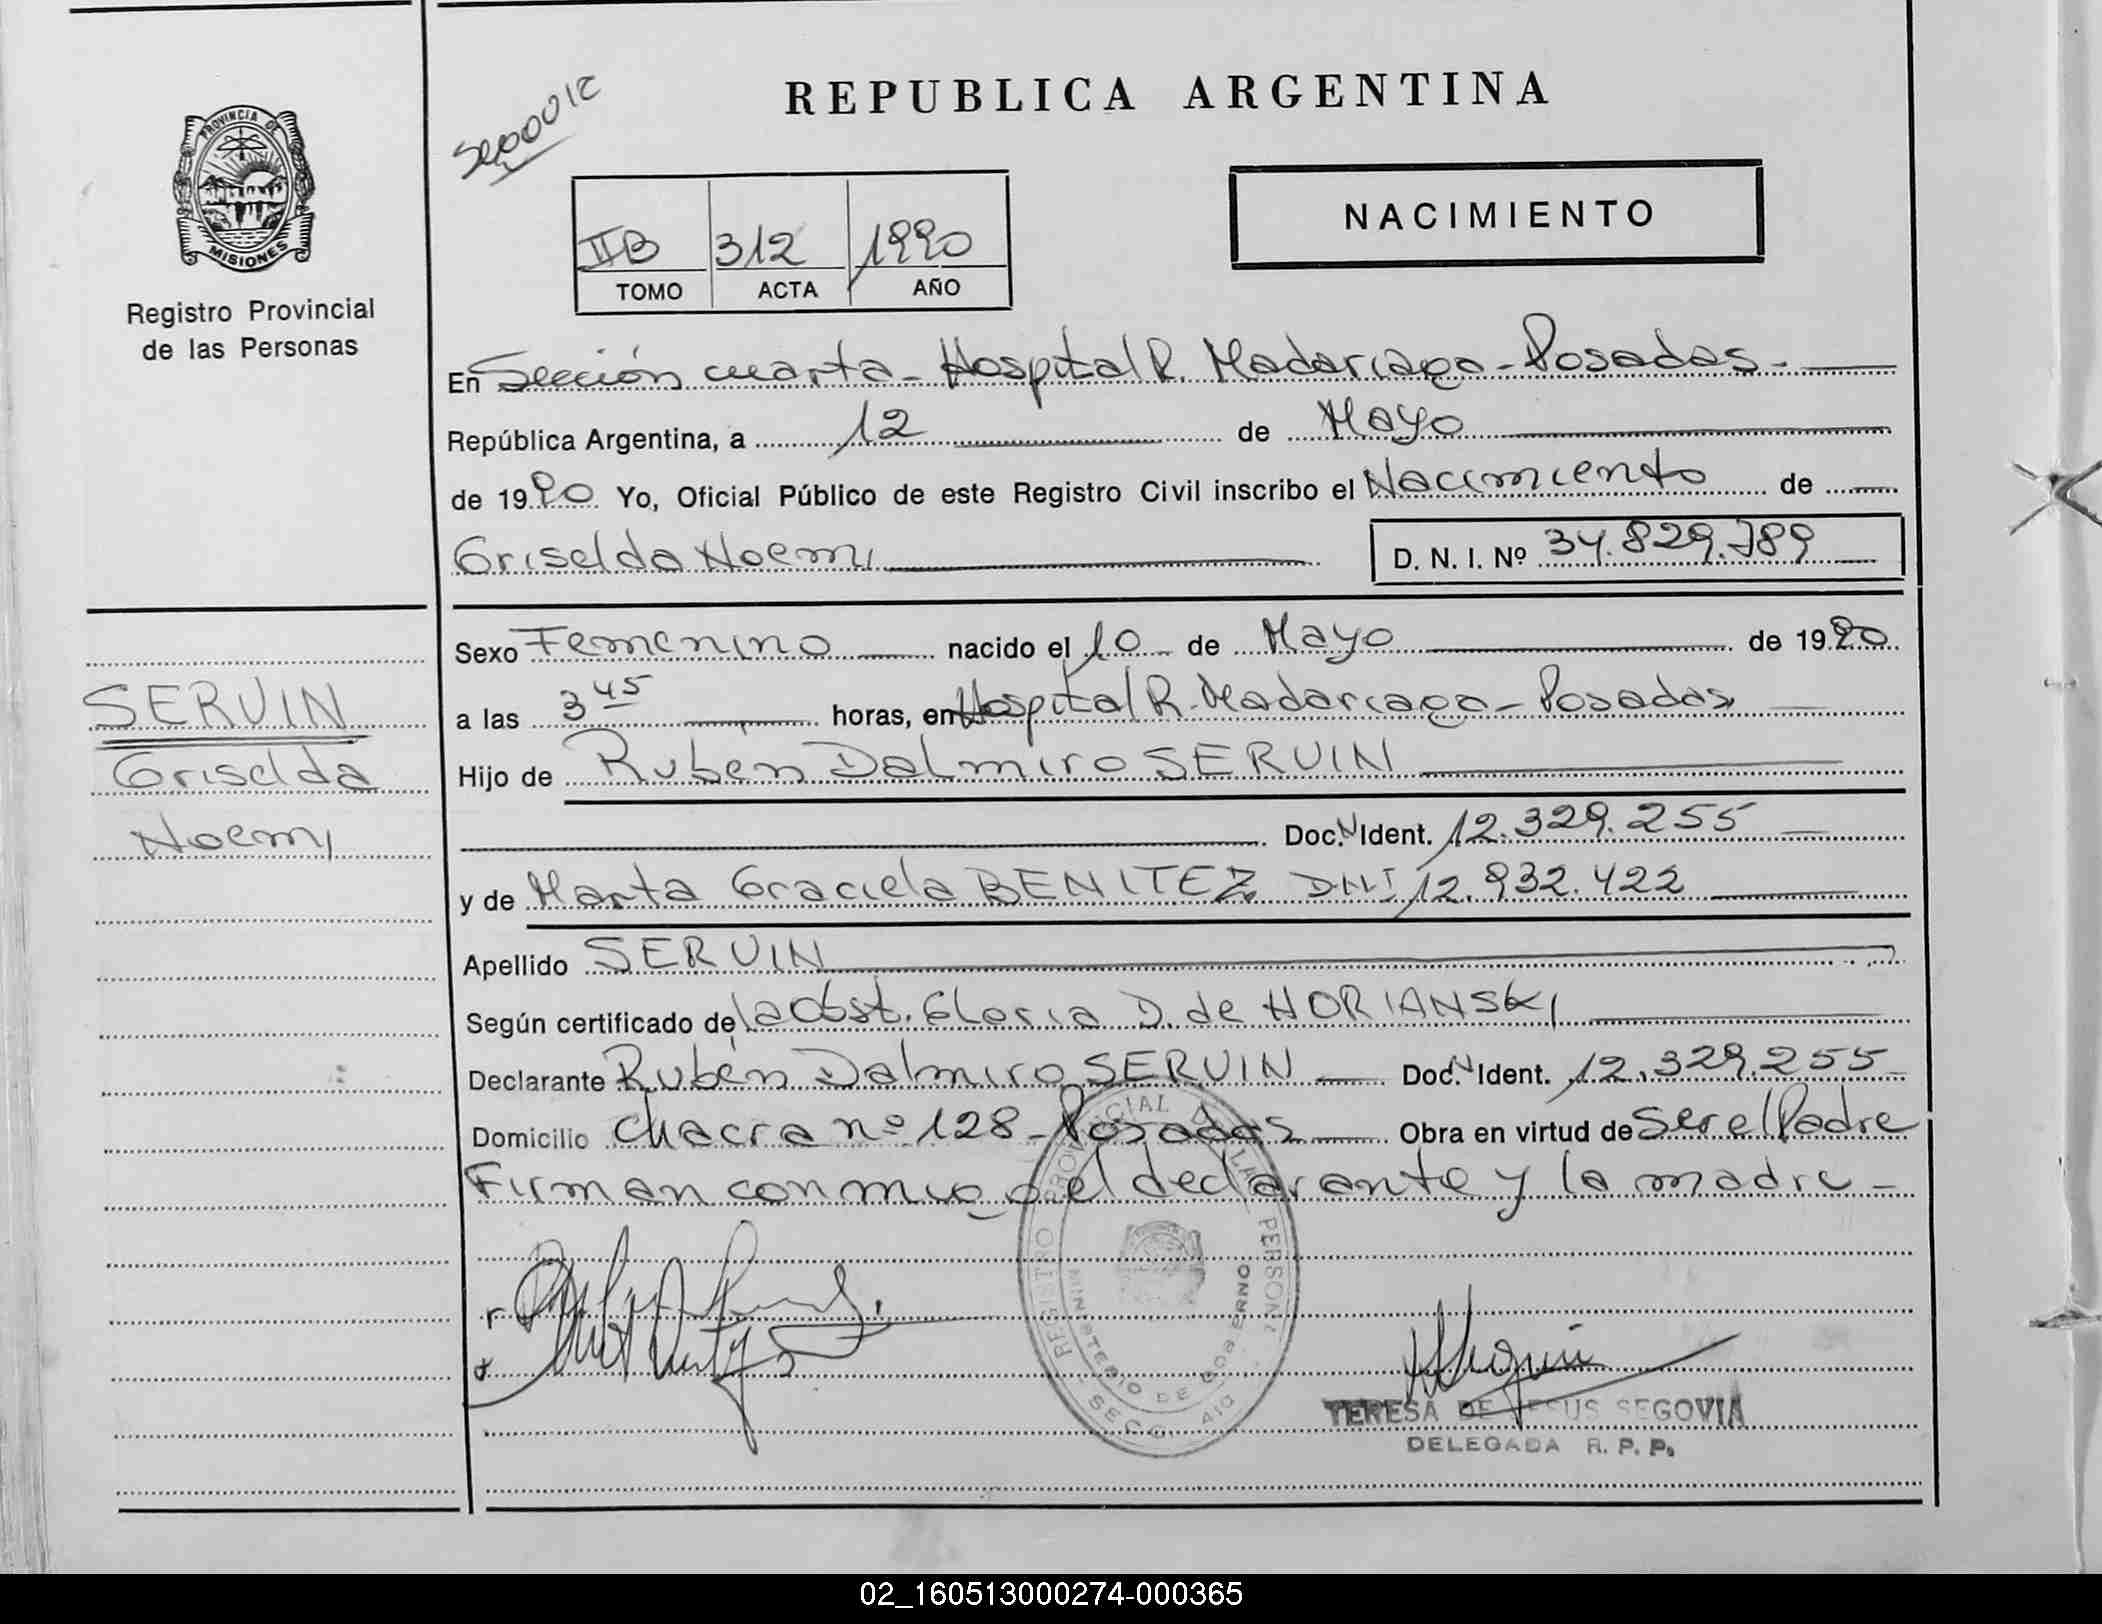 REPUBLICA ARGENTINA
PROVINCIA DE
MISIONES
Registro Provincial
de las Personas
NACIMIENTO
IIB 312 1990
TOMO ACTA AÑO
En Sección cuarta - Hospital R. Madariaga - Posadas -
República Argentina, a 12 de Mayo
de 1990 Yo, Oficial Público de este Registro Civil inscribo el Nacimiento de
Griselda Noemi D. N. I. Nº 34.829.789
Sexo Femenino nacido el 10 de Mayo de 1990
SERVIN
Griselda
Noemi
a las 3 45 horas, en Hospital R. Madariaga - Posadas
Hijo de Ruben Dalmiro SERVIN
Doc. N Ident. 12.329.255
y de Marta Graciela BENITEZ DNI 12.932.422
Apellido SERVIN
Según certificado de la Obst. Gloria D. de HORIANSKI
Declarante Rubén Dalmiro SERVIN Doc. N Ident. 12.329.255
Domicilio Chacra nº 128 - Posadas Obra en virtud de ser el Padre
Firman conmigo el declarante y la madre -
REGISTRO PROVINCIAL DE LA PERSONA
MINISTERIO DE GOBIERNO
TERESA DE JESUS SEGOVIA
DELEGADA R. P. P.
02_160513000274-000365